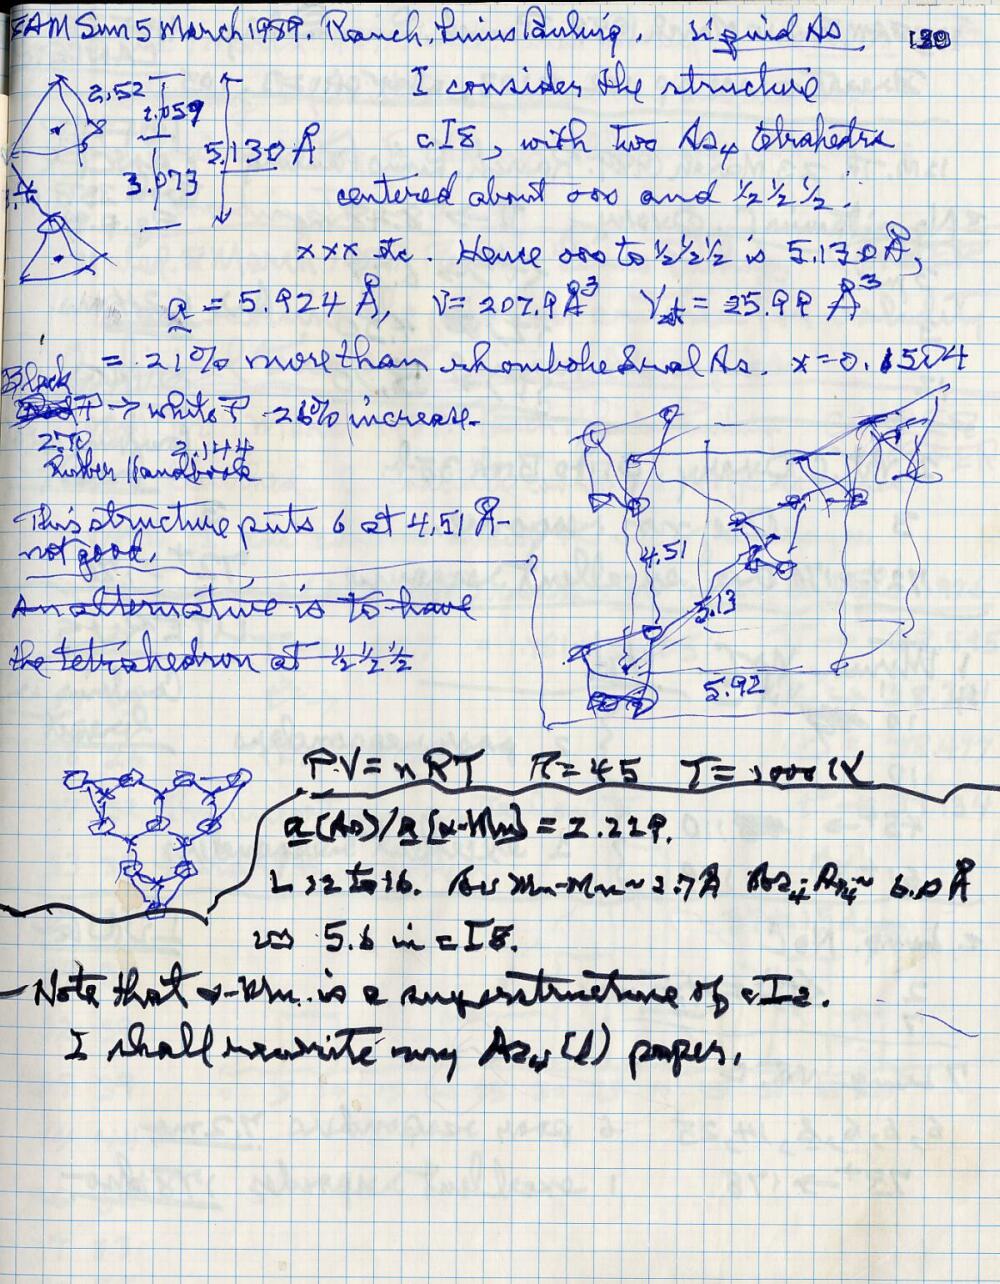 AM Sun 5 March 1989. Ranch, Linus Pauling. Liquid As
2.52
2.059
5.130 Å
3.073
I consider the structure
cI8, with two As4 tetrahedra
centered about 000 and ½ ½ ½:
xxx etc. Hence 000 to ½ ½ ½ is 5.130 Å,
a = 5.924 Å, V = 207.9 Å³ Vat = 25.99 Å³
= 21% more than rhombohedral As. x = 0.1504
Black
P → white P 26% increase.
2.70 2.144
Rubber Handbook
This structure puts 6 at 4.51 Å-
not good.
An alternative is to have
the tetrahedron at ½ ½ ½
4.51
5.13
5.92
PV = nRT R = 45 T = 1000 K
a(As)/a[α-Mn] =
L 12 to 16. Mn-Mn ~ 2.7 Å As4-As4 ~ 6.0 Å
5.6 in cI8.
- Note that α-Mn. is a superstructure of cI2.
I shall rewrite my As4(l) paper.